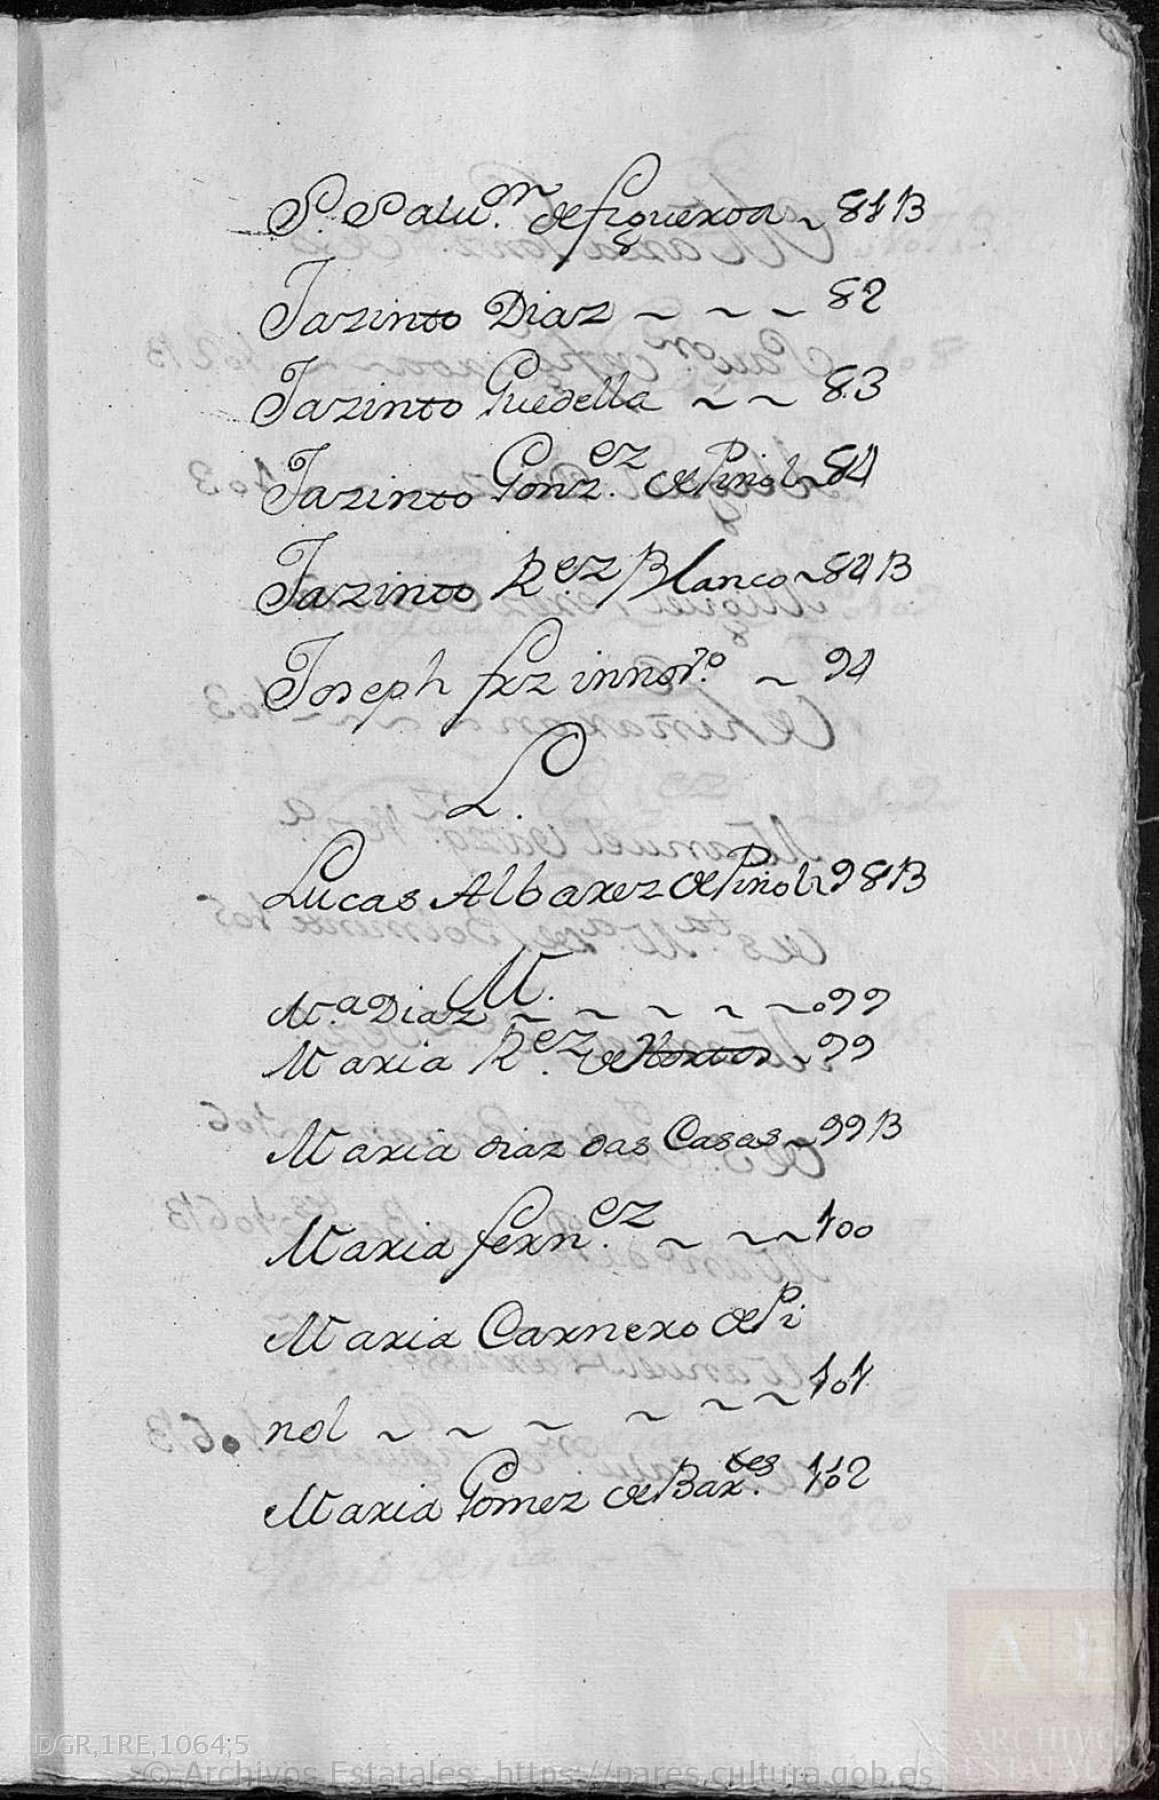 S. Salu.or de figueroa ~ 81 B
Jazinto Diaz ~ ~ ~ 82
Jazinto Guedella ~ ~ 83
Jazinto Gonz.ez de Pinol ~ 84
Jazinto R.ez Blanco ~ 84 B
Joseph frz ~ 94
L.
Lucas Albarez de Pinol ~ 98 B
M.
M.a Diaz ~ ~ ~ ~ ~ 99
Maria R.ez de ~ 99
Maria diaz das Casas ~ 99 B
Maria fern.ez ~ ~ ~ 100
Maria Carnero de Pi
nol ~ ~ ~ ~ ~ ~ 101
Maria Gomez de Bar.tes 102
DGR,1RE,1064,5
© Archivos Estatales, https://pares.cultura.gob.es
AE
ARCHIVOS
ESTATALES